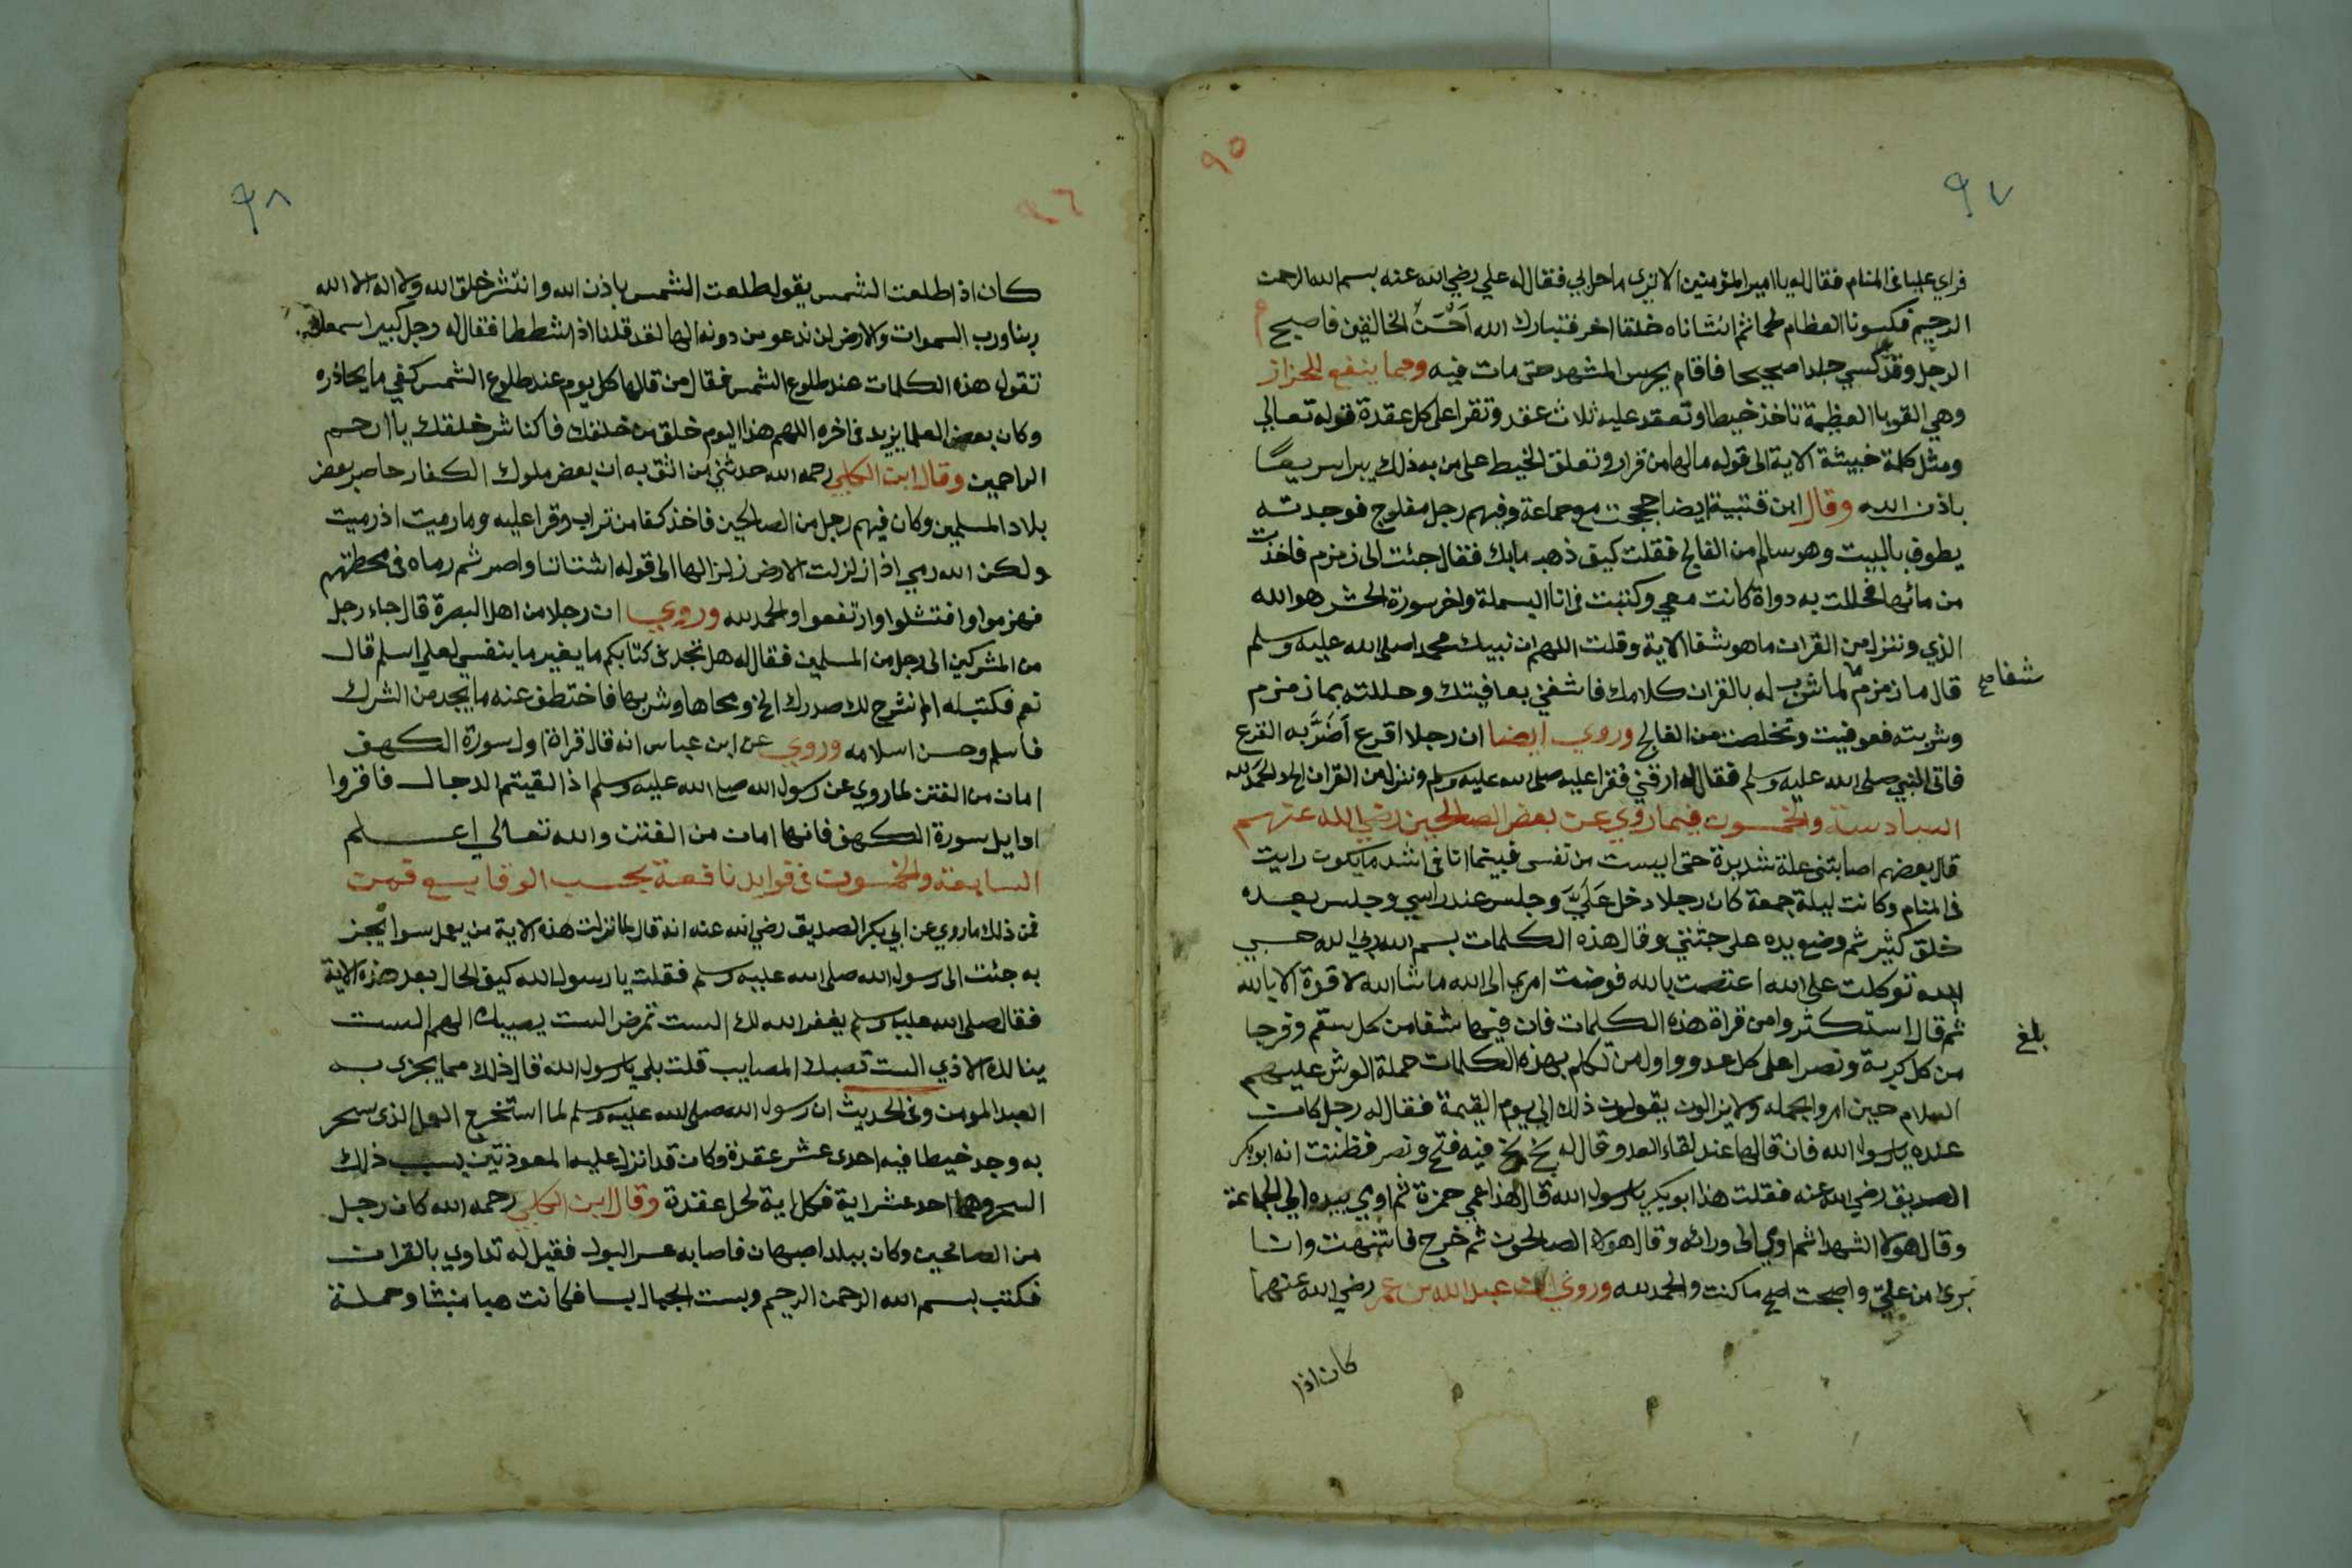 ٩٥
٩٧
فراي عليا في المنام فقال له يا امير المؤمنين الا ترى ما حل بي فقال له علي رضي الله عنه بسم الله الرحمن
الرحيم فكسونا العظام لحما ثم انشاناه خلقا اخر فتبارك الله احسن الخالقين فاصبح
الرجل وقد كسي جلدا صحيحا فاقام يحرس المشهد حتى مات فيه ومما ينفع للحزاز
وهي القوبا العظيمة تاخذ خيطا وتعقد عليه ثلاث عقد وتقرا على كل عقدة قوله تعالي
ومثل كلمة خبيثة الاية الى قوله مالها من قرار وتعلق الخيط على من به ذلك يبرا سريعا
باذن الله وقال ابن قتيبة ايضا حججت مع جماعة وفيهم رجل مفلوج فوجدته
يطوف بالبيت وهو سالم من الفالج فقلت كيف ذهب ما بك فقال جئت الى زمزم فاخذت
من مائها فحللت به دواة كانت معي وكتبت في انا البسملة واخر سورة الحشر هو الله
الذي وننزل من القران ما هو شفا الاية وقلت اللهم ان نبيك محمدا صلى الله عليه وسلم
قال ما زمزم لما شرب له بالقران كلامك فاشفني بعافيتك وحللته بما زمزم
شفا صح
وشربته فعوفيت وتخلصت من الفالج وروي ايضا ان رجلا اقرع اضر به القرع
فاتى النبي صلى الله عليه وسلم فقال له ارقني فقرا عليه صلى الله عليه وسلم وننزل من القران الخ والحمد لله
السادسة والخمسون فيما روي عن بعض الصالحين رضي الله عنهم
قال بعضهم اصابتني علة شديدة حتى ايست من نفسي فبينما انا في اشد ما يكون رايت
في المنام وكانت ليلة جمعة كان رجلا دخل علي وجلس عند راسي وجلس بعده
خلق كثير ثم وضع يده على جثتي وقال هذه الكلمات بسم الله ربي الله حسبي
الله توكلت على الله اعتصمت بالله فوضت امري الى الله ما شا الله لا قوة الا بالله
ثم قال استكثروا من قراة هذه الكلمات فان فيها شفا من كل سقم وفرجا
بلغ
من كل كربة ونصرا على كل عدو واول من تكلم بهذه الكلمات حملة العرش عليهم
السلام حين امروا بحمله ولا يزالون يقولون ذلك الى يوم القيمة فقال له رجل كان
عنده يا رسول الله فان قالها عند لقاء العدو قال له بخ بخ فيه فتح ونصر فظننت انه ابو بكر
الصديق رضي الله عنه فقلت هذا ابو بكر يا رسول الله قال هذا عمي حمزة ثم اوي بيده الى الجماعة
وقال هولا الشهدا ثم اوي الى ورائه وقال هولا الصالحون ثم خرج فانتبهت وانا
بريا من علتي واصبحت اصح ما كنت والحمد لله وروي ان عبد الله بن عمر رضي الله عنهما
كان اذا
٩٦
٩٨
كان اذا طلعت الشمس يقول طلعت الشمس باذن الله وانتشر خلق الله ولا اله الا الله
ربنا ورب السموات والارض لن ندعو من دونه الها لقد قلنا اذا شططا فقال له رجل كبير اسمعك
تقول هذه الكلمات عند طلوع الشمس فقال من قالها كل يوم عند طلوع الشمس كفي ما يحاذره
وكان بعض العلما يزيد في اخره اللهم هذا اليوم خلق من خلقك فاكفنا شر خلقك يا ارحم
الراحمين وقال ابن الكلبي رحمه الله حدثني من اثق به ان بعض ملوك الكفار حاصر بعض
بلاد المسلمين وكان فيهم رجل من الصالحين فاخذ كفا من تراب وقرا عليه وما رميت اذ رميت
ولكن الله رمي اذا زلزلت الارض زلزالها الى قوله اشتاتا وامر ثم رماه في محطتهم
فهزموا وافتشلوا وارتفعوا والحمد لله وروي ان رجلا من اهل البصرة قال جاء رجل
من المشركين الى رجل من المسلمين فقال له هل تجد في كتابكم ما يغير ما بنفسي لعلي اسلم قال
نعم فكتب له الم نشرح لك صدرك الخ ومحاها وشربها فاختطف عنه ما يجد من الشرك
فاسلم وحسن اسلامه وروي عن ابن عباس انه قال قراة اول سورة الكهف
امان من الفتن لما روي عن رسول الله صلى الله عليه وسلم اذا لقيتم الدجال فاقروا
اوايل سورة الكهف فانها امان من الفتن والله تعالي اعلم
السابعة والخمسون في فوايد نافعة بحسب الوقايع فمن
فمن ذلك ما روي عن ابي بكر الصديق رضي الله عنه انه قال لما نزلت هذه الاية من يعمل سوا يجز
به جئت الى رسول الله صلى الله عليه وسلم فقلت يا رسول الله كيف الحال بعد هذه الاية
فقال صلى الله عليه وسلم يغفر الله لك الست تمرض الست يصيبك الهم الست
ينالك الاذي الست تصبك المصايب قلت بلي يا رسول الله قال ذلك مما يجزى به
العبد المومن وفي الحديث ان رسول الله صلى الله عليه وسلم لما استخرج العمل الذى سحر
به وجد خيطا فيه احدى عشر عقدة وكان قد انزل عليه المعوذتين بسبب ذلك
السحر وهما احد عشر اية فكل اية لحل عقدة وقال ابن الكلبي رحمه الله كان رجل
من الصالحين وكان ببلد اصبهان فاصابه عسر البول فقيل له تداوي بالقران
فكتب بسم الله الرحمن الرحيم وبست الجبال بسا فكانت هبا منبثا وحملة